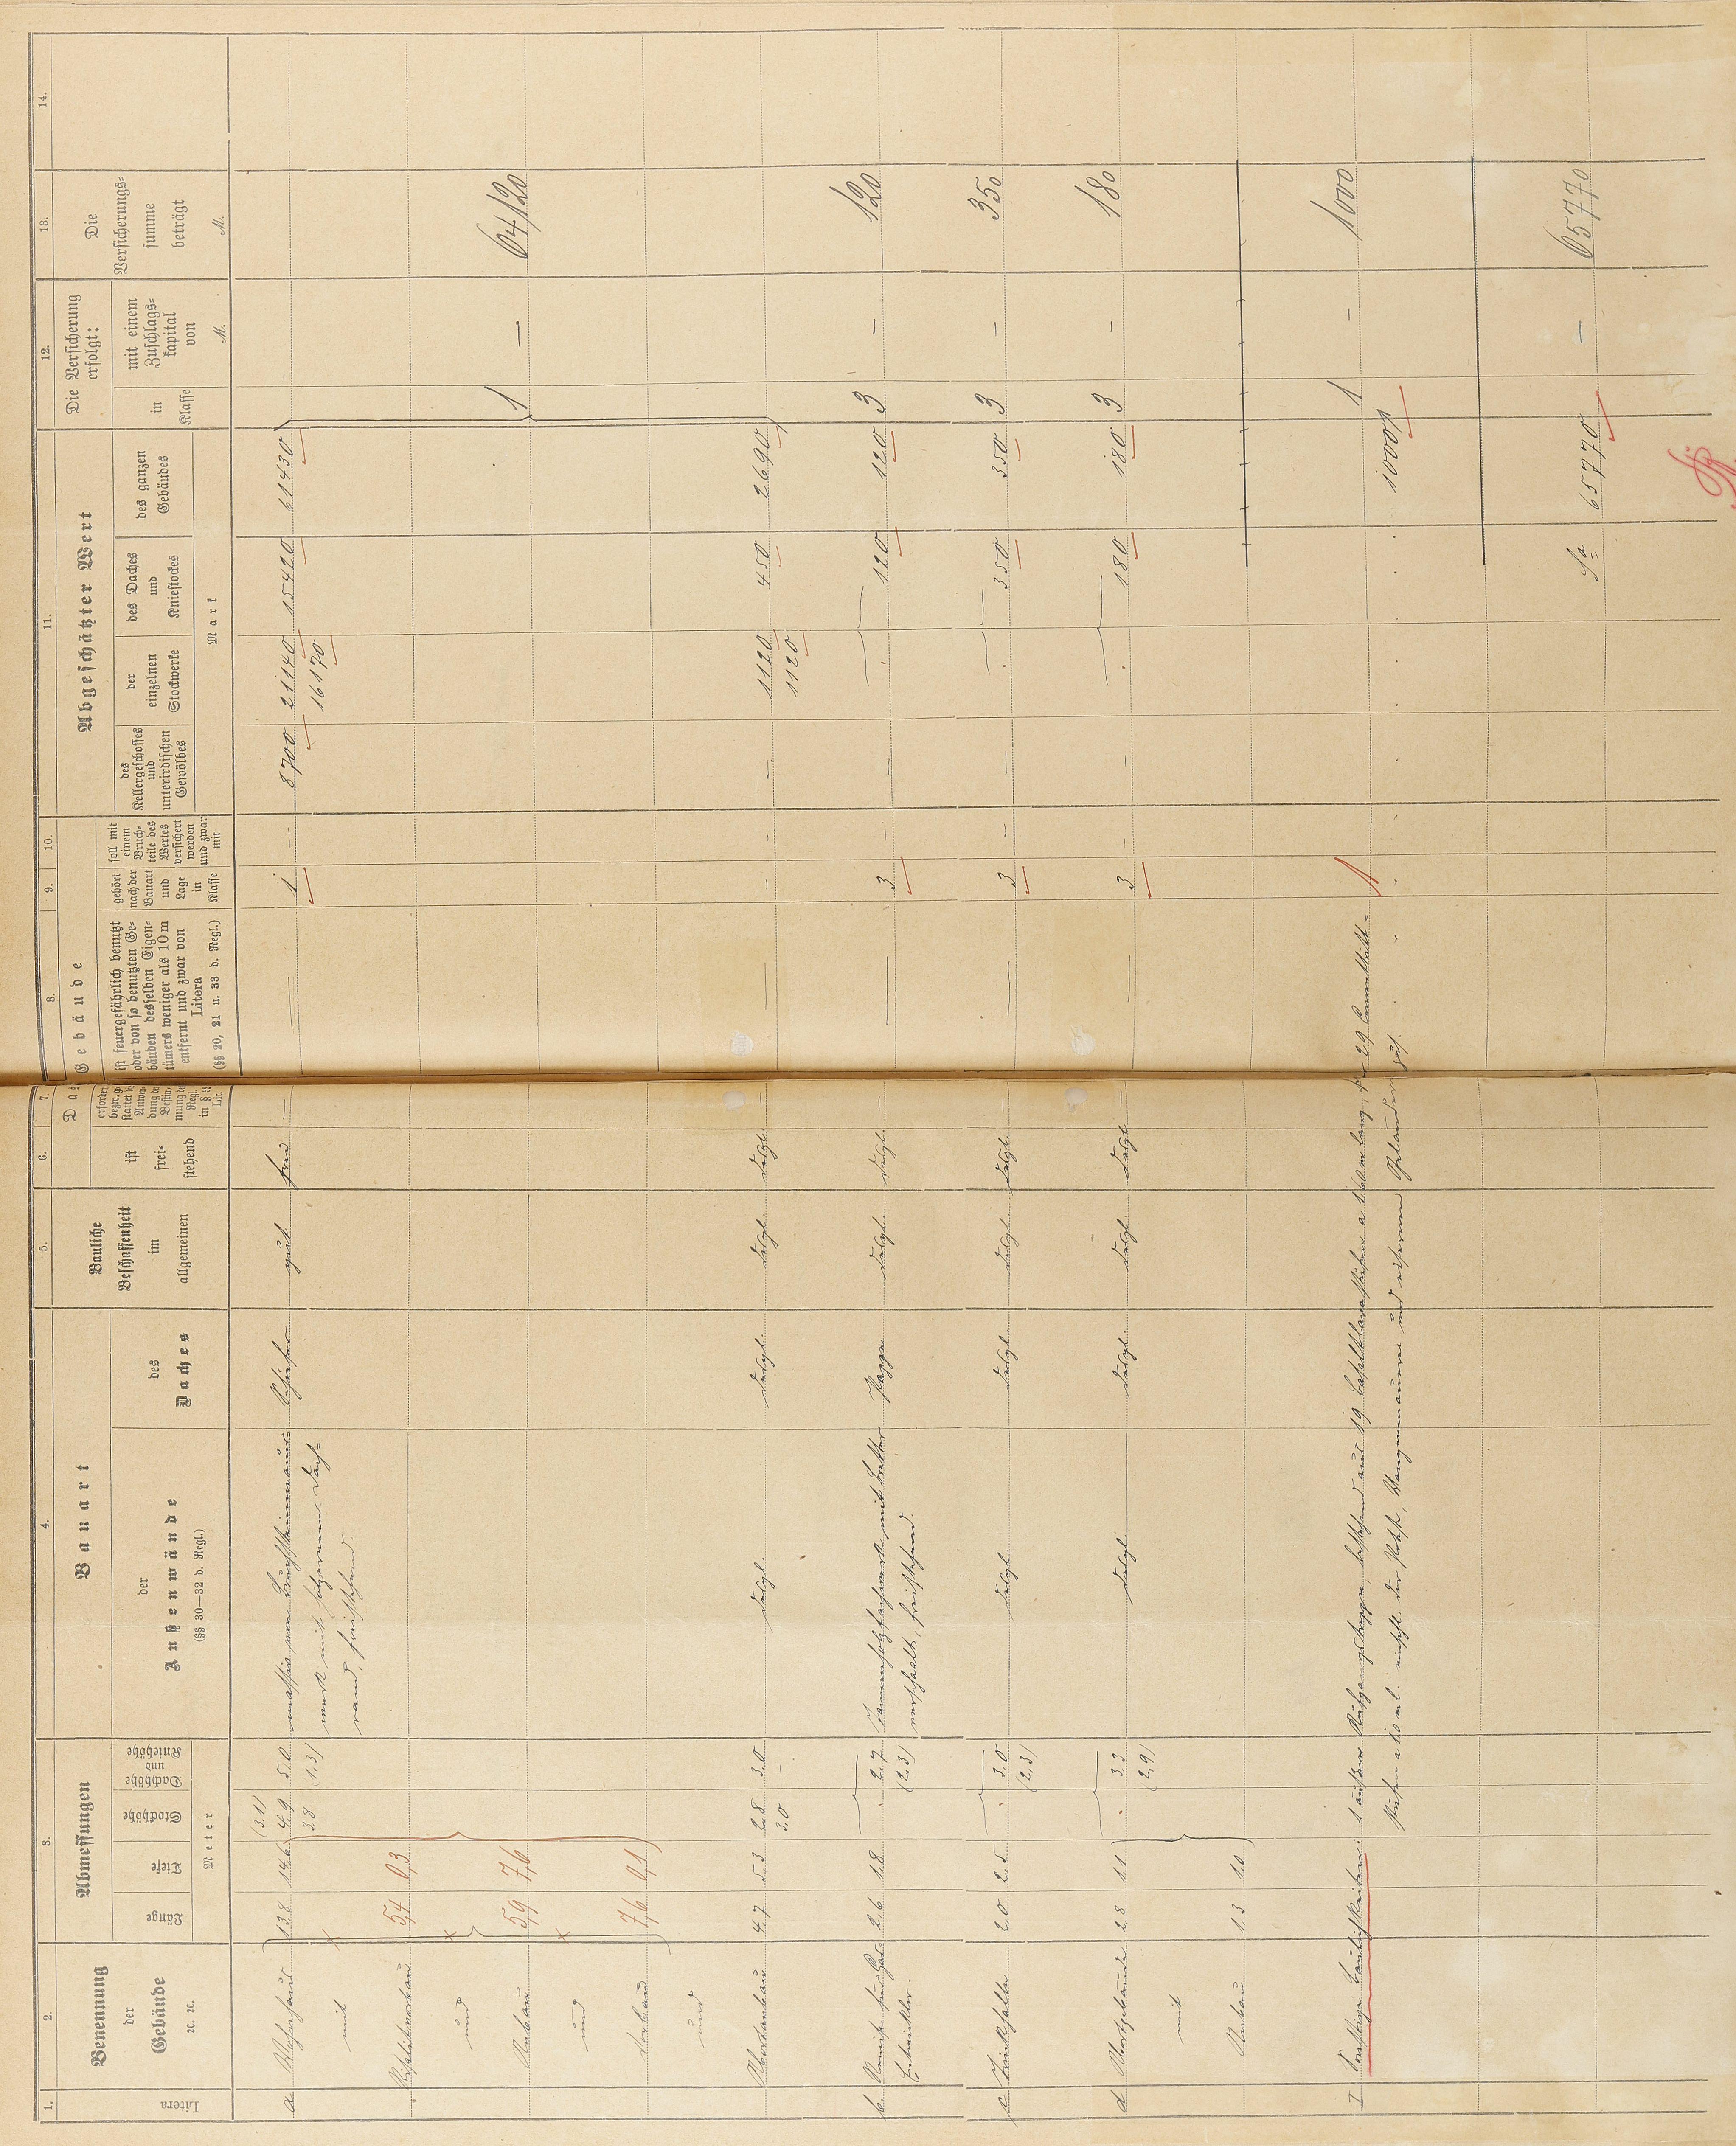 1.
2.
3.
4.
5.
6.
7.
8.
9.
10.
11.
12.
13.
14.
Litera
Benennung
der
Gebäude
ꝛc. ꝛc.
Abmessungen
Länge
Tiefe
Stockhöhe
Dachhöhe
und
Kniehöhe
Meter
Bauart
der
Außenwände
(§§ 30—32 d. Regl.)
des
Daches
Bauliche
Beschaffenheit
im
allgemeinen
Das Gebäude
ist
frei-
stehend
ist feuergefährlich benutzt
oder von so benutzten Ge-
bäuden desselben Eigen-
tümers weniger als 10 m
entfernt und zwar von
Litera
(§§ 20, 21 u. 33 d. Regl.)
gehört
nach der
Bauart
und
Lage
in
Klasse
soll mit
einem
Bruch-
teile des
Wertes
versichert
werden
und zwar
mit
Abgeschätzter Wert
des
Kellergeschosses
und
unterirdischen
Gewölbes
der
einzelnen
Stockwerke
des Daches
und
Kniestockes
des ganzen
Gebäudes
Mark
Die Versicherung
erfolgt:
in
Klasse
mit einem
Zuschlags-
kapital
von
M.
Die
Versicherungs-
summe
beträgt
M.
(3,1)
a Wohnhaus 13,8 14,6 4,9 5,0 massiv von Bruchsteinmauer- Schiefer gut frei — 1 — 8700 21140 15420 61430
mit 3,8 1,3) werk mit hölzernem Dach- 16170
rand, freistehend.
5,4 0,3
und
Anbau 5,9 7,6 1 — 64120
und
Vorbau 7,6 0,1
und
Abortanbau 4,7 5,3 2,8 3,0 desgl. desgl. desgl. desgl. — — — — 1120 450 2690
3,0 — 1120
b. 2,6 1,8 . 2,7 Tannenholzfachwerk, mit Bretter Pappe desgl. desgl. — 3 — — . 120 120 3 — 120
(2,3) verschalt, freistehend.
c Trinkhalle 2,0 2,5 . 3,0 desgl. desgl. desgl. desgl. — 3 — — . 350 350 3 — 350
(2,3)
d Abortgebäude 2,8 1,1 . 3,3 desgl. desgl. desgl. desgl. — 3 — — . 180 180 3 — 180
mit (2,9)
Anbau 1,3 1,0
I Sonstige Baulichkeiten: 1 äußere bestehend aus 19 a 1,60 m lang, 1 — 1000
a 1,0 m l. und eisernem Geländer 1000
Sa 65770 — 65770